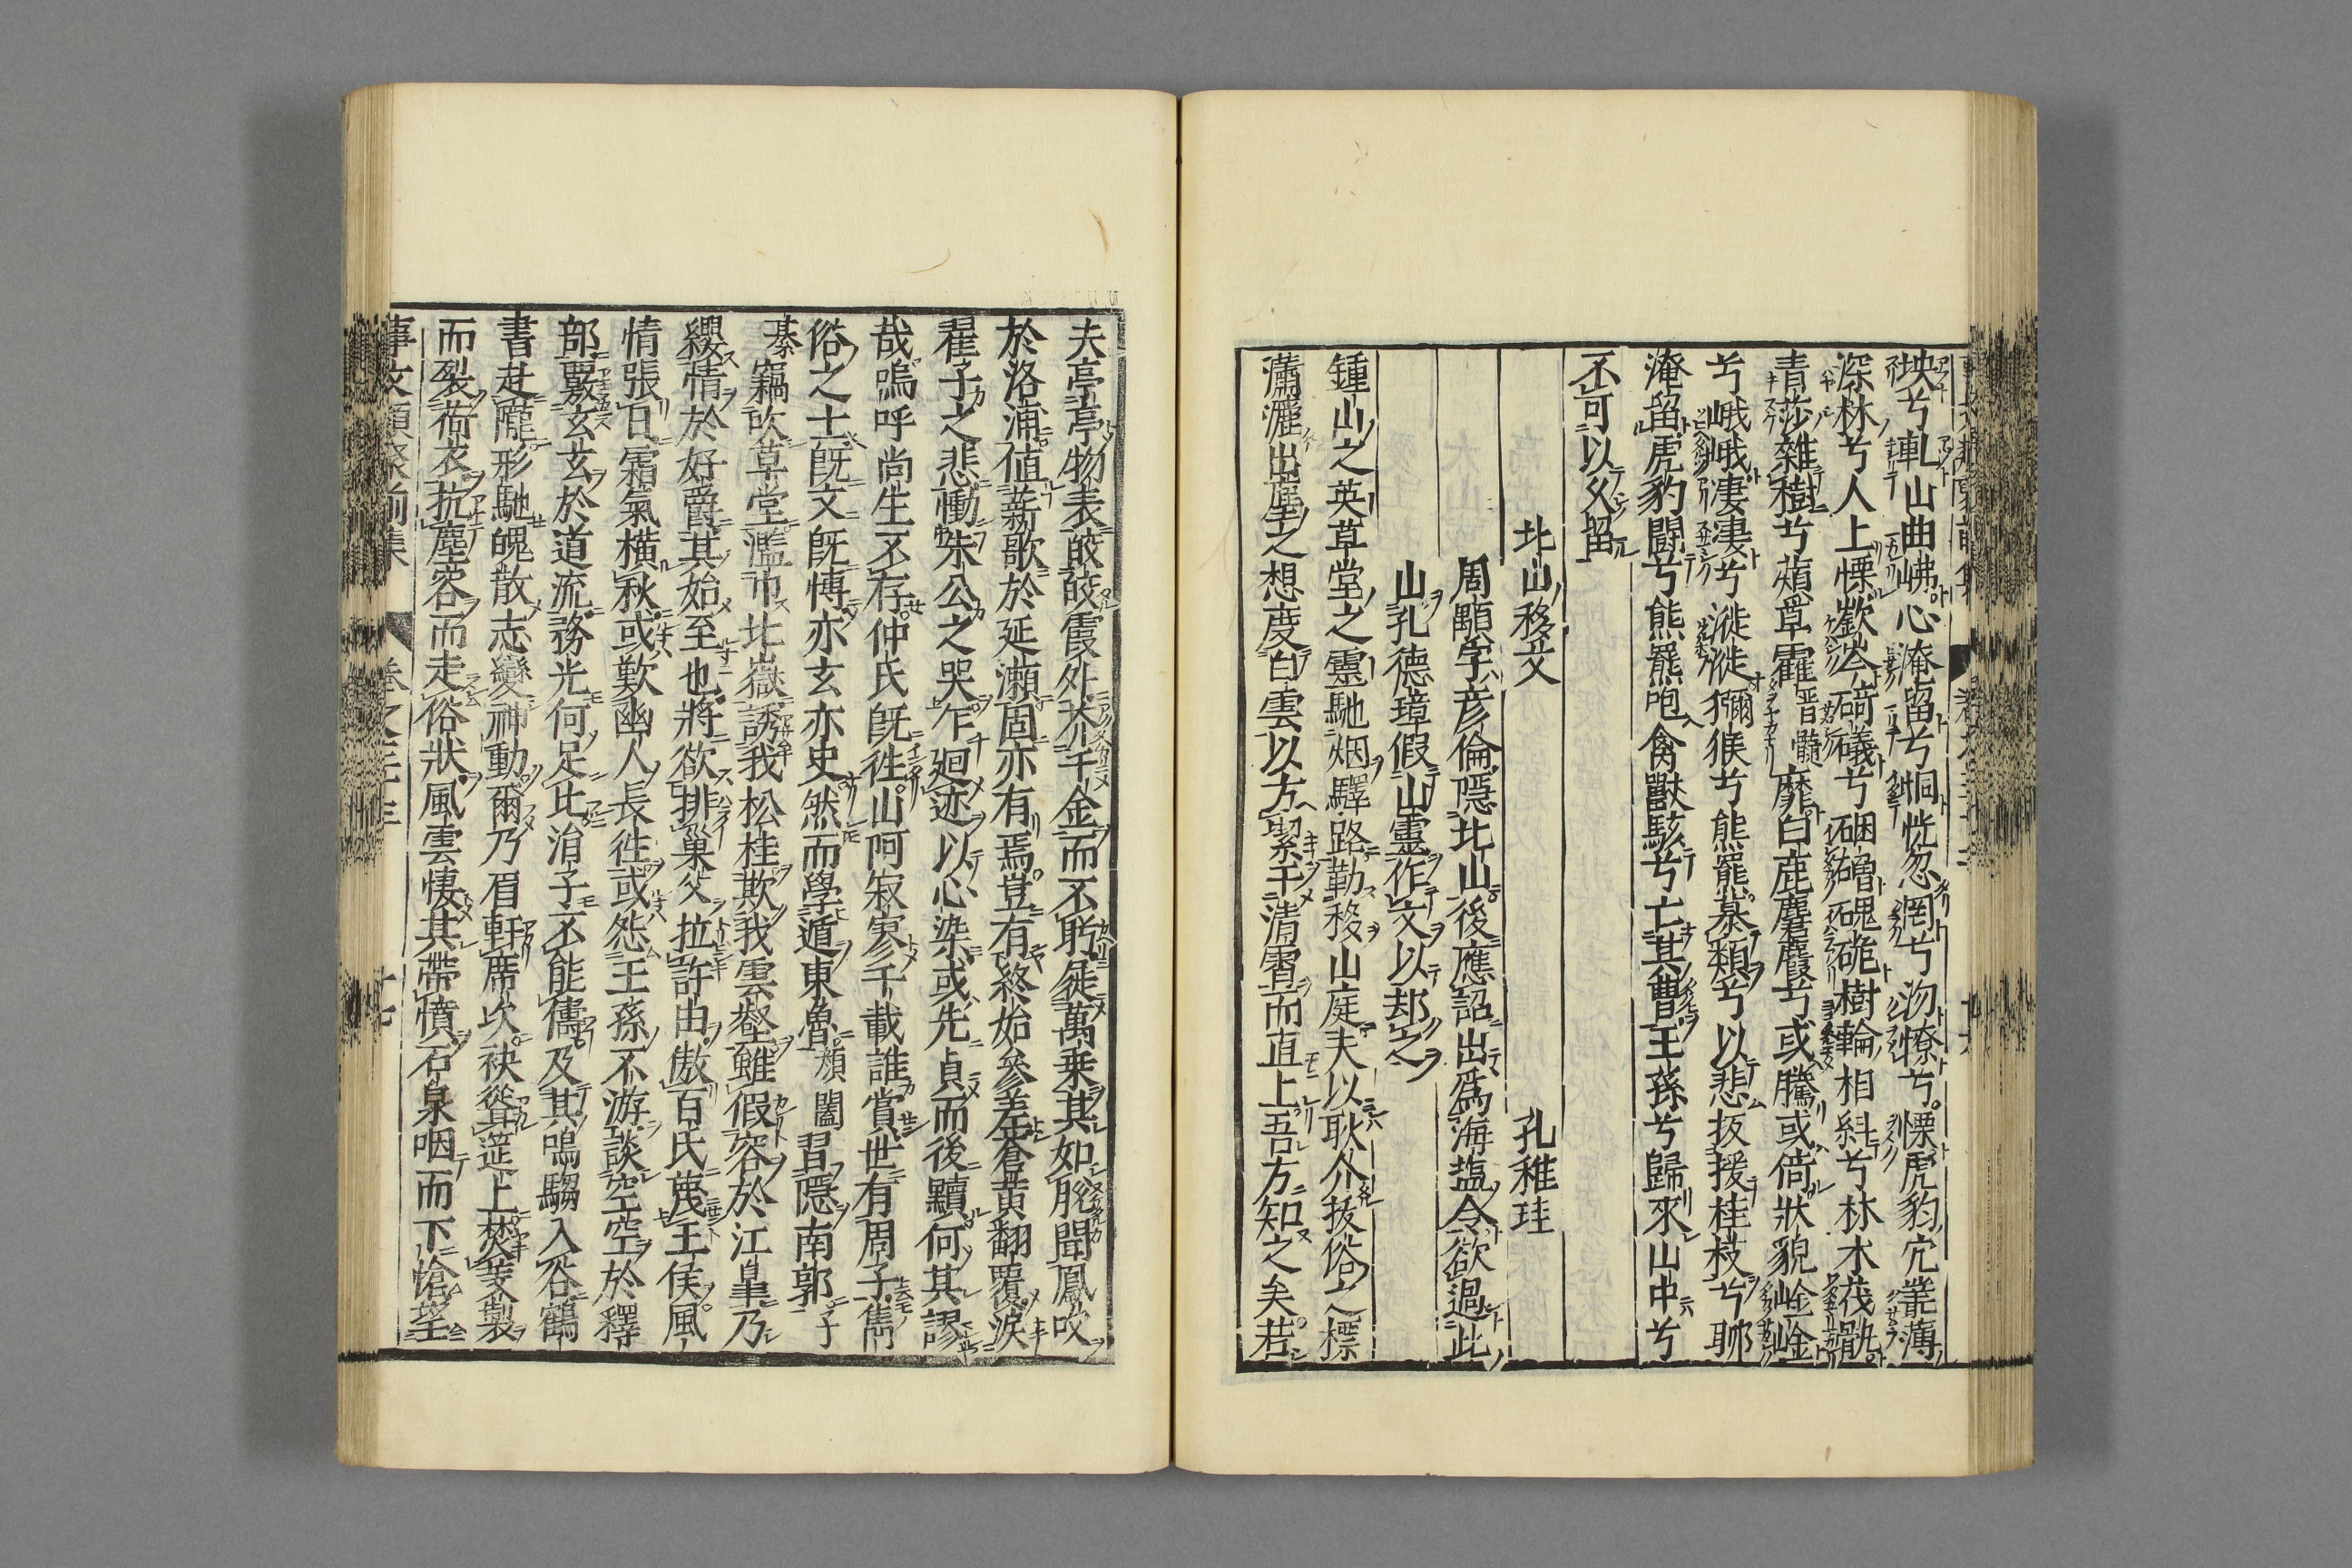 坱兮軋山曲岪心淹留兮恫慌忽罔兮沕憭兮慄虎豹穴叢薄
深林兮人上慄嶔岑碕礒兮硱磳磈硊樹輪相糾兮林木茷骫
青莎雜樹兮薠草靃靡白鹿麏麚兮或騰或倚狀貌崯崯
兮峨峨凄凄兮漇漇獼猴兮熊羆慕類兮以悲扳援桂枝兮聊
淹留虎豹闘兮熊羆咆禽獸駭兮亡其曹王孫兮歸來山中兮
不可以久留
北山移文 孔稚珪
周顒字彥倫隱北山後應詔出爲海塩令欲過此
山孔德璋假山靈作文以却之
鍾山之英草堂之靈馳烟驛路勒移山庭夫以耿介拔俗之標
瀟灑出塵之想度白雲以方潔千清霄而直上吾方知之矣若
夫亭亭物表皎皎霞外芥千金而不眄屣萬乗其如脫聞鳳吹
於洛浦値薪歌於延瀨固亦有焉豈有終始參差蒼黃翻覆淚
翟子之悲慟朱公之哭乍廻迹以心染或先貞而後黷何其謬
哉嗚呼尚生不存仲氏旣徃山阿寂寥千載誰賞世有周子雋
俗之士旣文旣愽亦玄亦史然而學遁東魯顏闔習隱南郭子
綦竊吹草堂濫巾北嶽誘我松桂欺我雲壑雖假容於江皐乃
纓情於好爵其始至也將欲排巢父拉許由傲百氏蔑王侯風
情張日霜氣橫秋或歎幽人長徃或怨王孫不游談空空於釋
部覈玄玄於道流務光何足比涓子不能儔及其鳴騶入谷鶴
書赴隴形馳魄散志變神動爾乃眉軒席次袂聳筵上焚芰製
而裂荷衣抗塵容而走俗狀風雲悽其帶憤石泉咽而下愴望
事文類聚前集 卷之三十三 十七